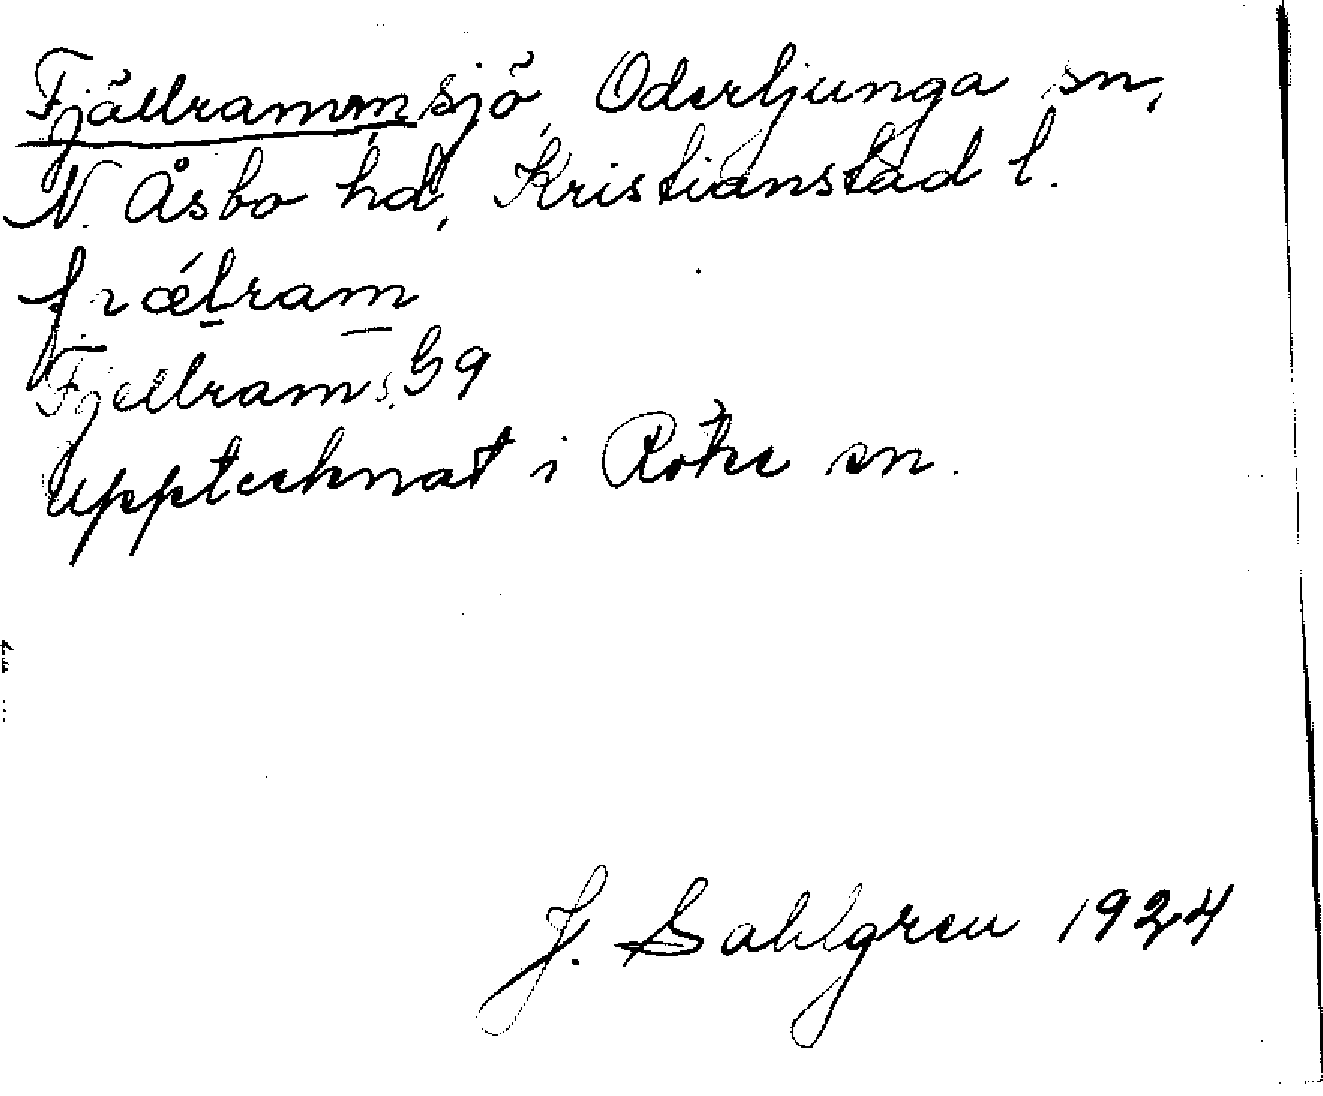 Fjällrammsjö, Oderljunga sn,
N. Åsbo hd, Kristianstad l.
frǽlram
Fjellram s. G 9
Upptecknat i Röke sn.
J. Sahlgren 1924